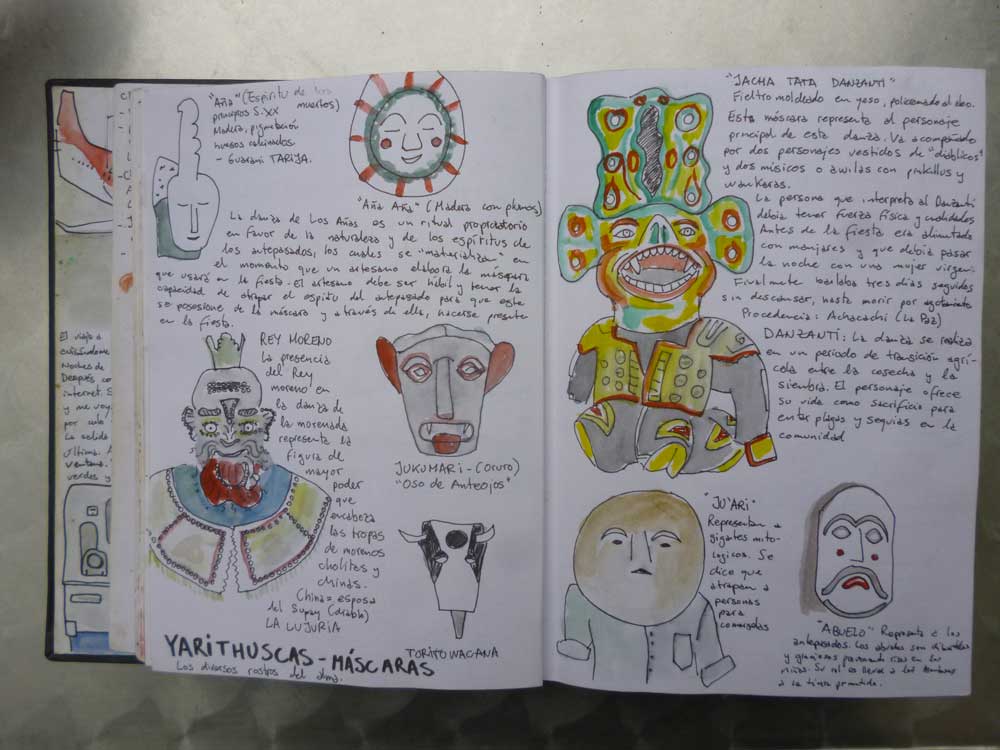 "Aña" (Espíritu de los
muertos)
principios S.XX
Madera, pigmentación
huesos calcinados
- Guaraní TARIJA.
"Aña Aña" (Madera con plumas)
La danza de Los Añas es un ritual propiciatorio
en favor de la naturaleza y de los espíritus de
los antepasados, los cuales se "materializan" en
el momento que un artesano elabora la máscara
que usará en la fiesta. El artesano debe ser hábil y tener la
capacidad de atrapar el espíritu del antepasado para que este
se posesione de la máscara y a través de ella, hacerse presente
en la fiesta.
REY MORENO
La presencia
del Rey
moreno en
la danza de
la morenada
representa la
figura de
mayor
poder
que
encabeza
las tropas
de morenos
cholitas y
chinas.
China = esposa
del Supay (diablo)
LA LUJURIA
JUKUMARI - (Oruro)
"Oso de Anteojos"
TORITO WACANA
YARITHUSCAS - MÁSCARAS
Los diversos rostros del alma.
"JACHA TATA DANZANTI"
Fieltro moldeado en yeso, policromado al óleo.
Esta máscara representa al personaje
principal de esta danza. Va acompañado
por dos personajes vestidos de "diablicos"
y dos músicos o awilas con pinkillus y
wankaras.
La persona que interpreta al Danzanti
debía tener fuerza física y cualidades
Antes de la fiesta era alimentada
con manjares y que debía pasar
la noche con una mujer virgen.
Finalmente bailaba tres días seguidos
sin descansar, hasta morir por agotamiento
Procedencia: Achacachi (La Paz)
DANZANTI: La danza se realiza
en un periodo de transición agrí-
cola entre la cosecha y la
siembra. El personaje ofrece
su vida como sacrificio para
evitar plagas y sequías en la
comunidad
"JU'ARI"
Representan a
gigantes mito-
lógicos. Se
dice que
atrapan a
personas
para
comérselas
"ABUELO" Representa a los
antepasados. Los abuelos son
y graciosos provocando risas en los
niños. Su rol es llevar a los hombres
a la tierra prometida.
El viaje a
Noches de
Después
internet. S
y me voy
por
La salida
última. A
ventana.
verdes y